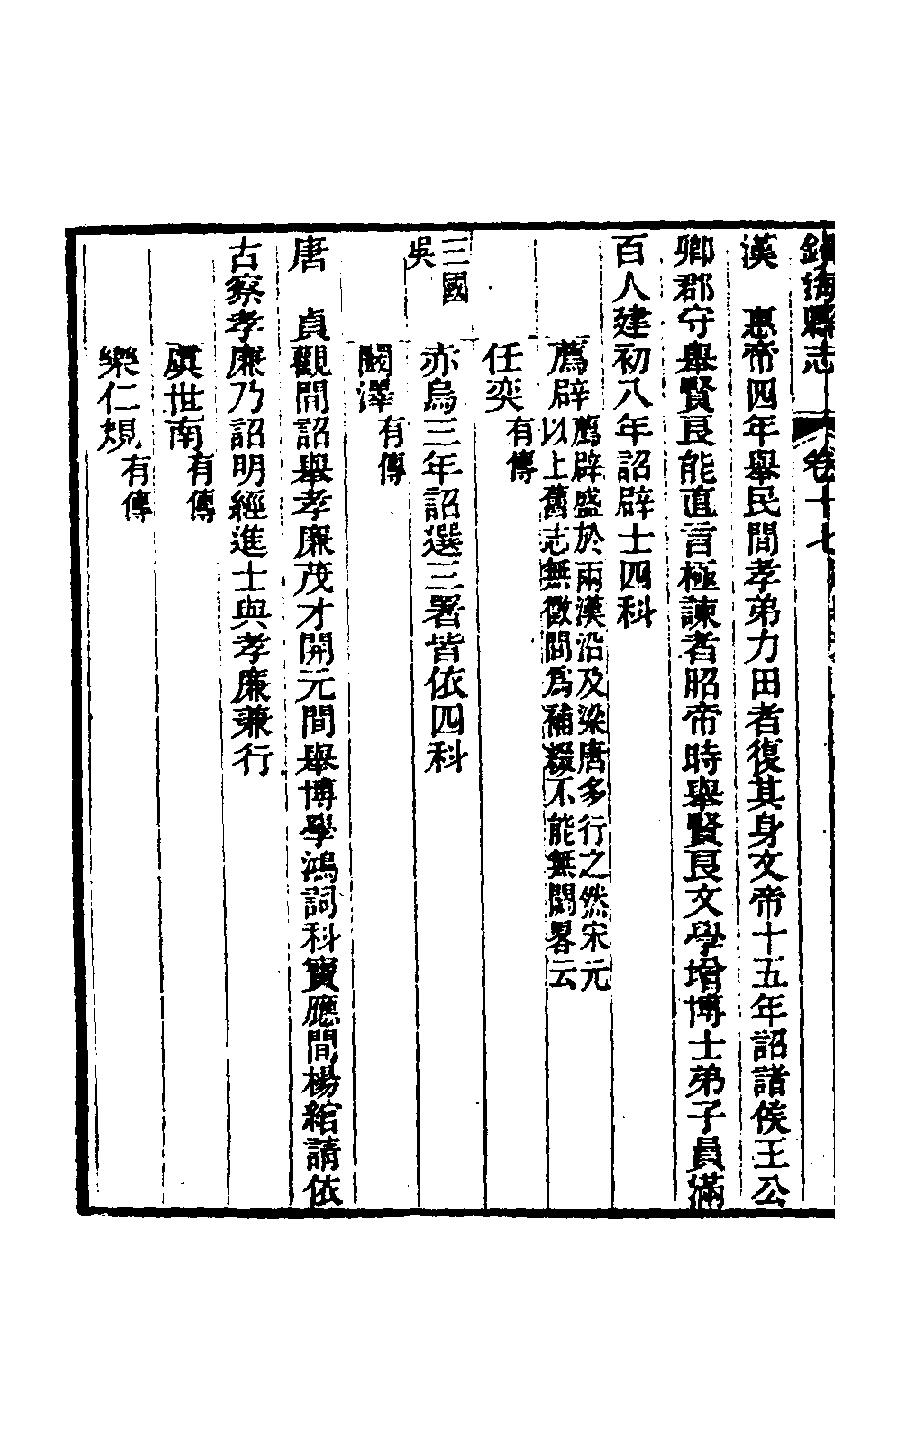 鎮海縣志　卷十七
漢　惠帝四年舉民間孝弟力田者復其身文帝十五年詔諸侯王公
卿郡守舉賢良能直言極諫者昭帝時舉賢良文學增博士弟子員滿
百人建初八年詔辟士四科
薦辟
薦辟盛於兩漢沿及梁唐多行之然宋元
以上舊志無徵間為補綴不能無闕畧云
任奕有傳
三國
吳
赤烏三年詔選三署皆依四科
闞澤有傳
唐　貞觀間詔舉孝廉茂才開元間舉博學鴻詞科寶應間楊綰請依
古察孝廉乃詔明經進士與孝廉兼行
虞世南有傳
樂仁規有傳